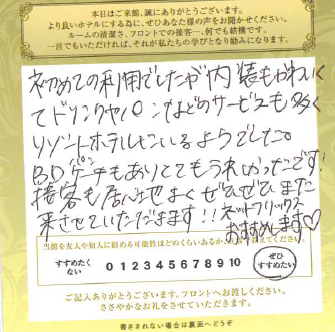 本日はご来館、誠にありがとうございます。
より良いホテルにする為に、ぜひあなた様の声をお聞かせください。
ルームの清潔さ、フロントでの接客…、何でも結構です。
一言でもいただければ、それが私たちの学びとなり励みになります。
初めての利用でしたが内装もかわいく
てドリンクやパンなどのサービスも多く
リゾートホテルにいるようでした。
BDケーキもありとてもうれしかったです!
接客も居心地よくぜひぜひまた
来させていただきます!!ネットフリックス
おすすめします♡
当館を友人や知人に勧める可能性はどのくらいあるか、
えてください。
すすめたく
ない
0 1 2 3 4 5 6 7 8 9 10
ぜひ
すすめたい
ご記入ありがとうございます。フロントへお渡しください。
ささやかなお礼をさせていただきます。
書ききれない場合は裏面へどうぞ